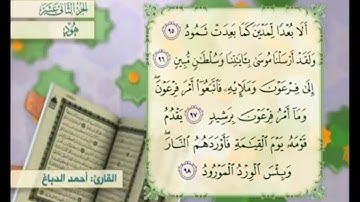 الجزء الثاني عشر
هُود
أَلَا بُعْدًا لِّمَدْيَنَ كَمَا بَعِدَتْ ثَمُودُ ٩٥
وَلَقَدْ أَرْسَلْنَا مُوسَىٰ بِـَٔايَٰتِنَا وَسُلْطَٰنٍ مُّبِينٍ ٩٦
إِلَىٰ فِرْعَوْنَ وَمَلَإِيْهِۦ فَٱتَّبَعُوٓا۟ أَمْرَ فِرْعَوْنَ ۖ
وَمَآ أَمْرُ فِرْعَوْنَ بِرَشِيدٍ ٩٧ يَقْدُمُ
قَوْمَهُۥ يَوْمَ ٱلْقِيَٰمَةِ فَأَوْرَدَهُمُ ٱلنَّارَ ۖ
وَبِئْسَ ٱلْوِرْدُ ٱلْمَوْرُودُ ٩٨
القارئ: أحمد الدباغ